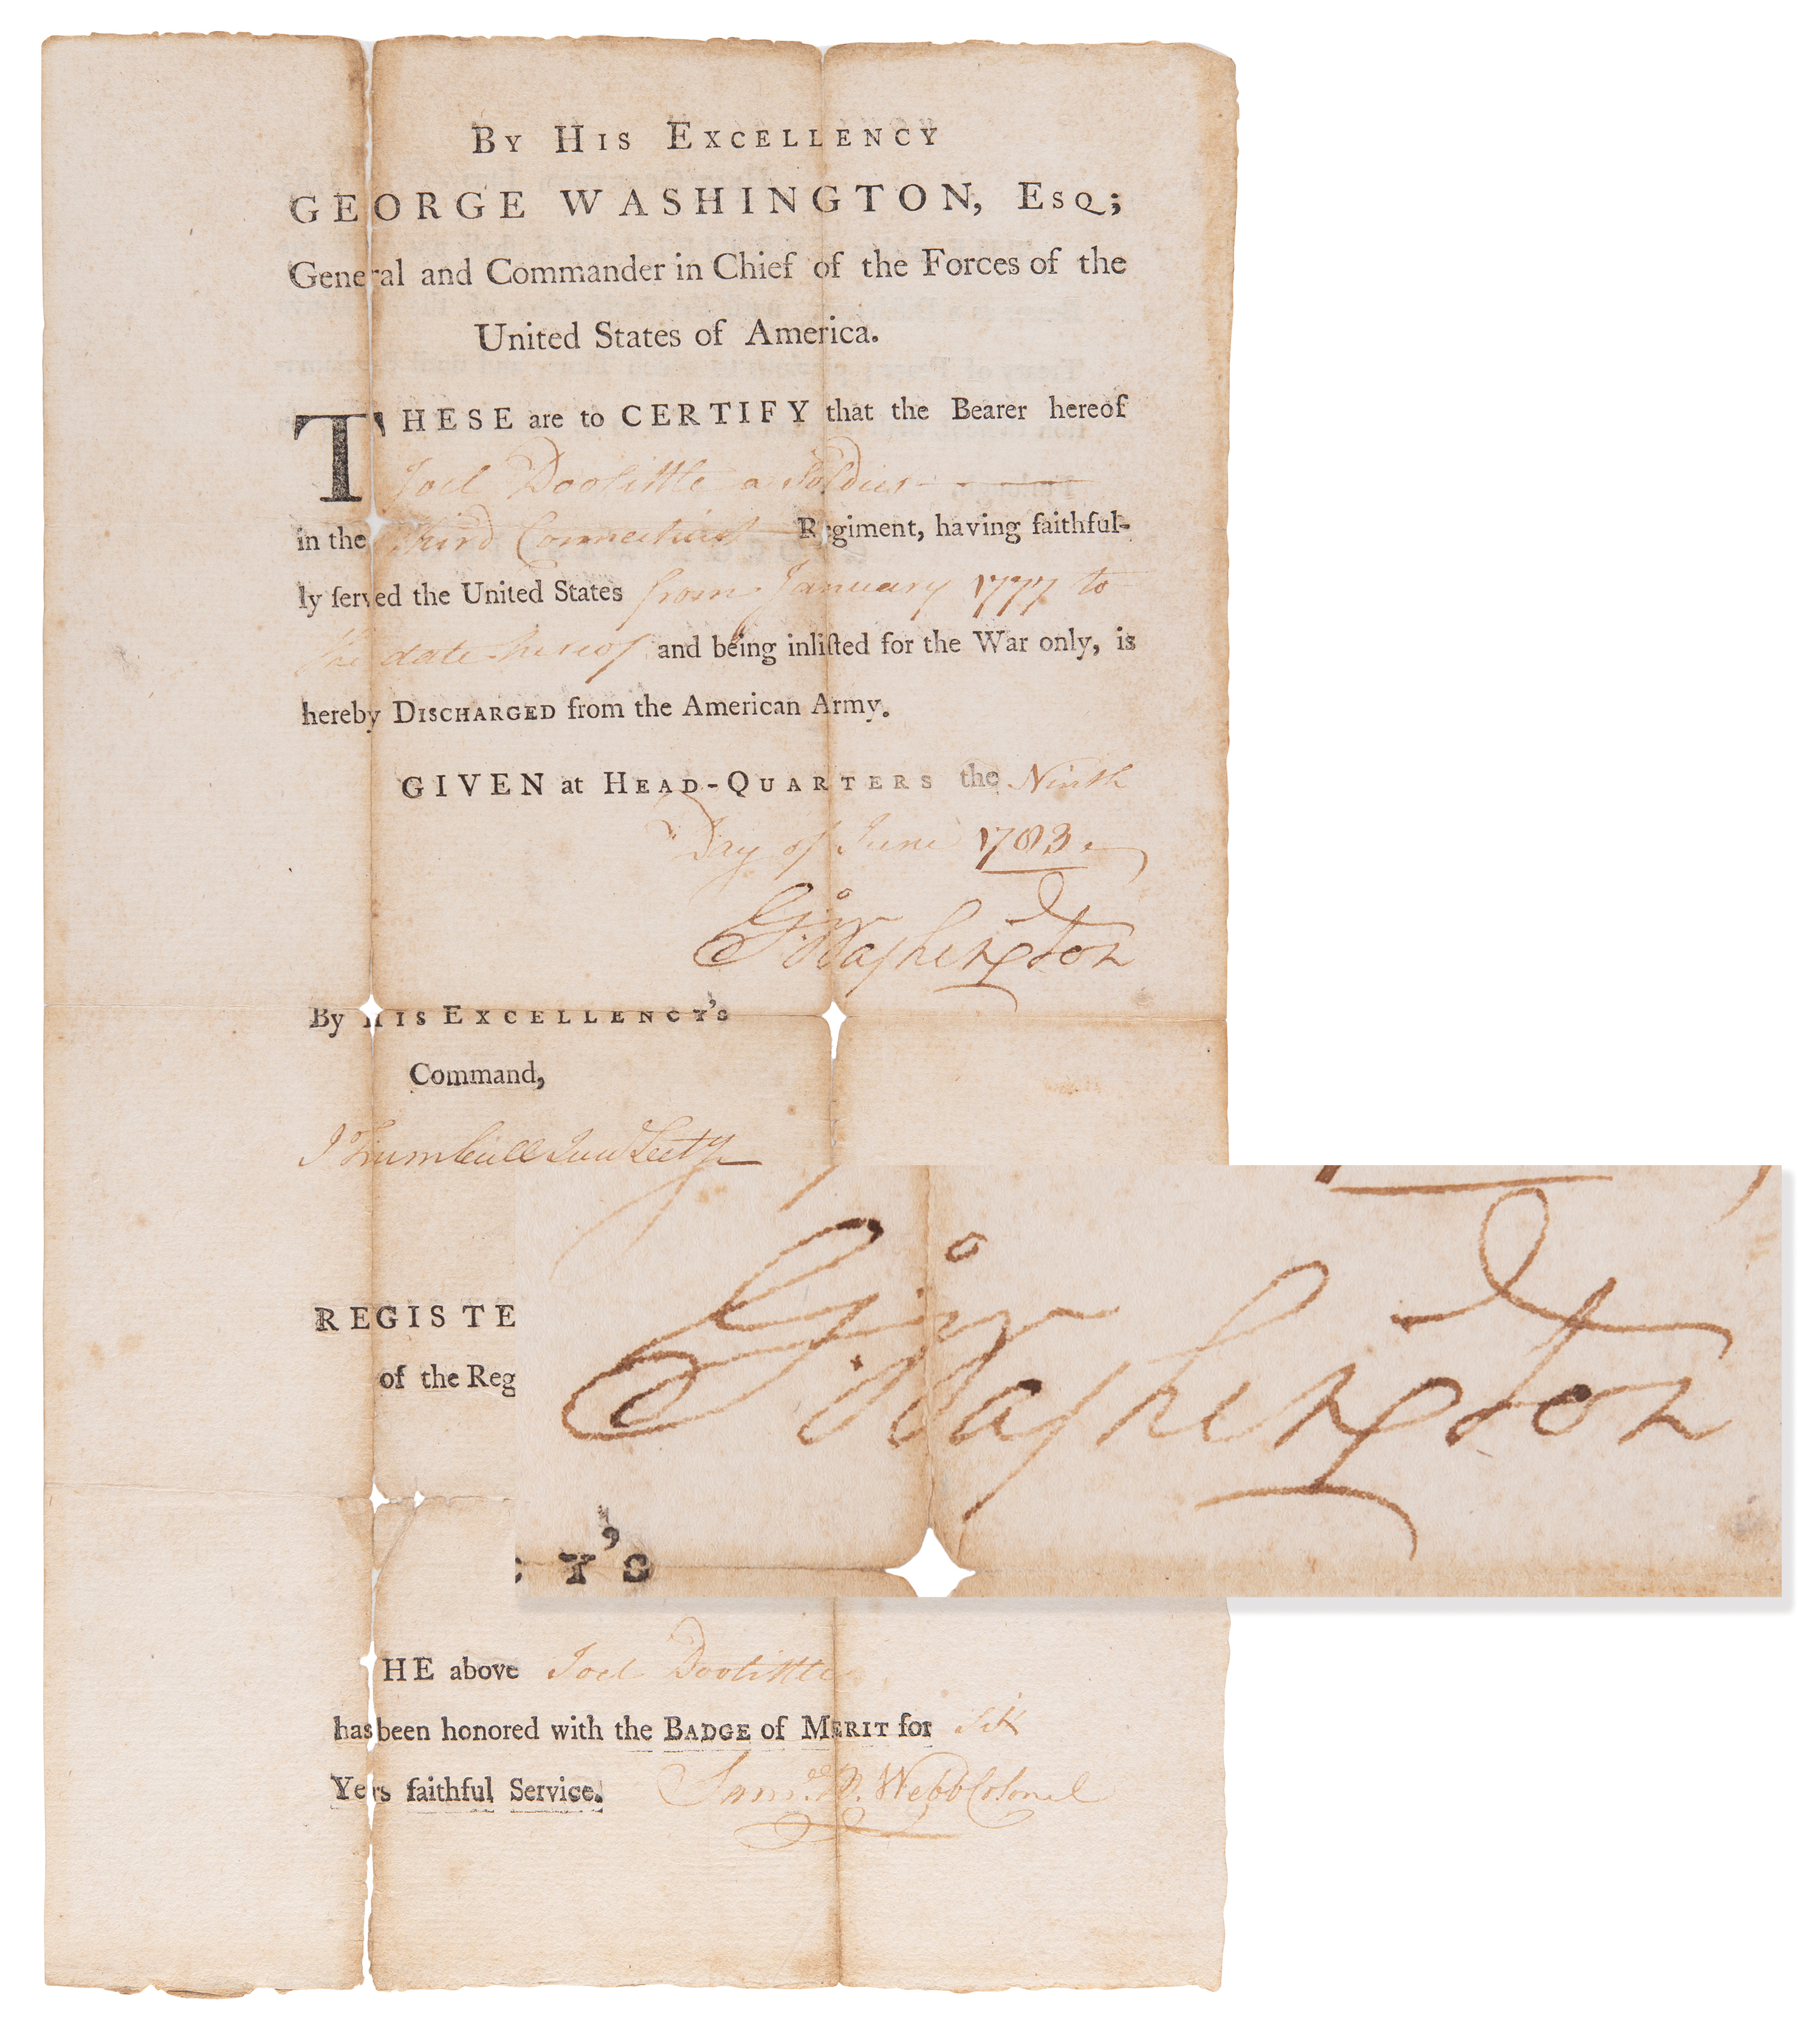 By His Excellency
GEORGE WASHINGTON, Esq;
General and Commander in Chief of the Forces of the
United States of America.
THESE are to CERTIFY that the Bearer hereof
Joel Doolittle a Soldier
in the Third Connecticut Regiment, having faithful-
ly served the United States from January 1777 to
the date hereof and being inlisted for the War only, is
hereby Discharged from the American Army.
GIVEN at Head-Quarters the Ninth
Day of June 1783.
Go: Washington
By His Excellency's
Command,
J Trumbull Jun Secty
REGISTE
of the Reg
Go: Washington
CY'S
HE above Joel Doolittle
has been honored with the Badge of Merit for Six
Yers faithful Service. Saml. B. Webb Colonel